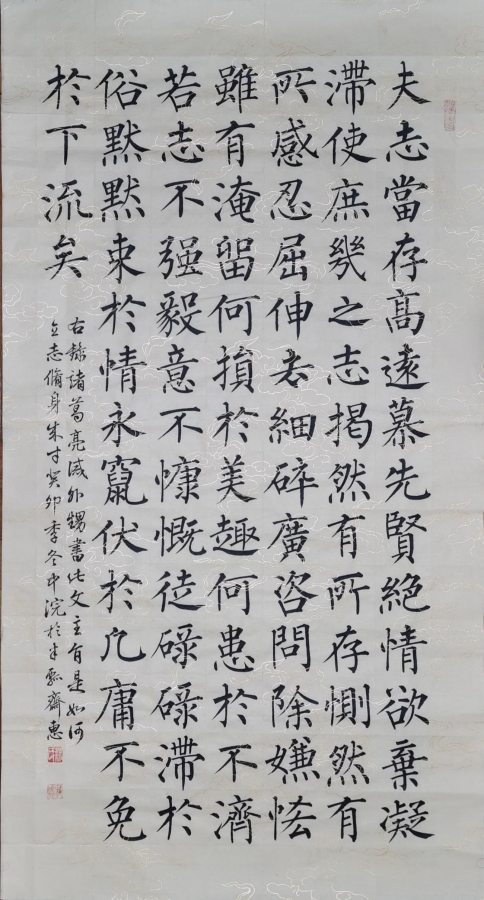 夫志當存髙遠慕先賢絕情欲棄凝
滯使庶幾之志揭然有所存惻然有
所感忍屈伸去細碎廣咨問除嫌恡
雖有淹留何損於美趣何患於不濟
若志不强毅意不慷慨徒碌碌滯於
俗默默束於情永竄伏於凡庸不免
於下流矣
右錄諸葛亮誡外甥書此文主旨是如何
立志脩身成才癸卯季冬中浣於半瓢齋惠